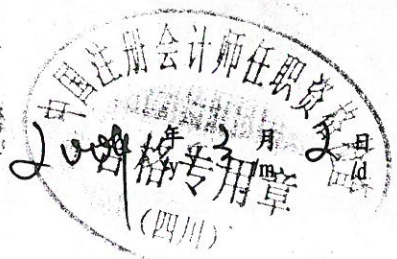 中国注册会计师任职资格检查
2009年3月2日
/y /m /d
合格专用章
(四川)